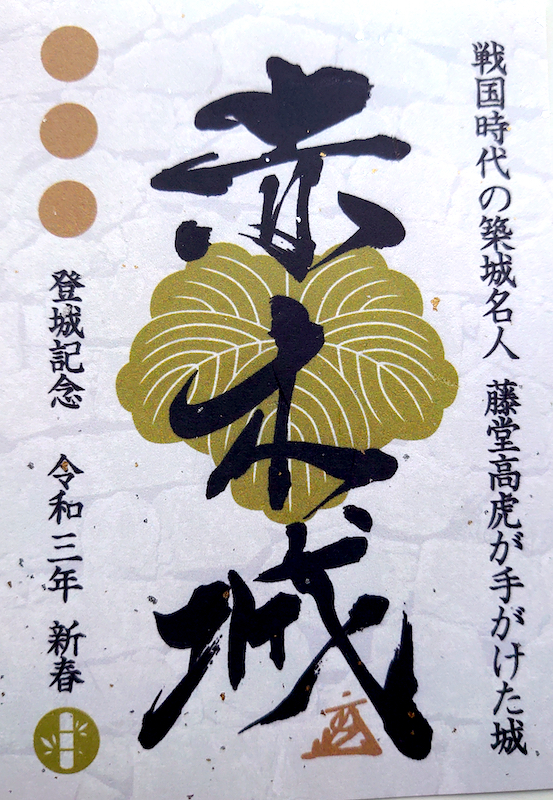 戦国時代の築城名人 藤堂高虎が手がけた城
赤木城
登城記念 令和三年 新春